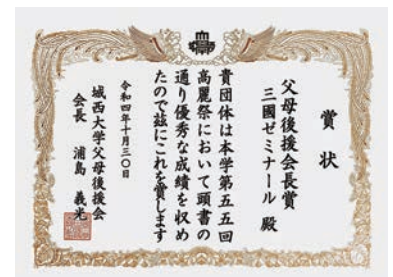 賞状
父母後援会長賞
三國ゼミナール 殿
貴団体は本学第五五回
高麗祭において頭書の
通り優秀な成績を収め
たので茲にこれを賞します
令和四年十月三〇日
城西大学父母後援会
会長 浦島 義光